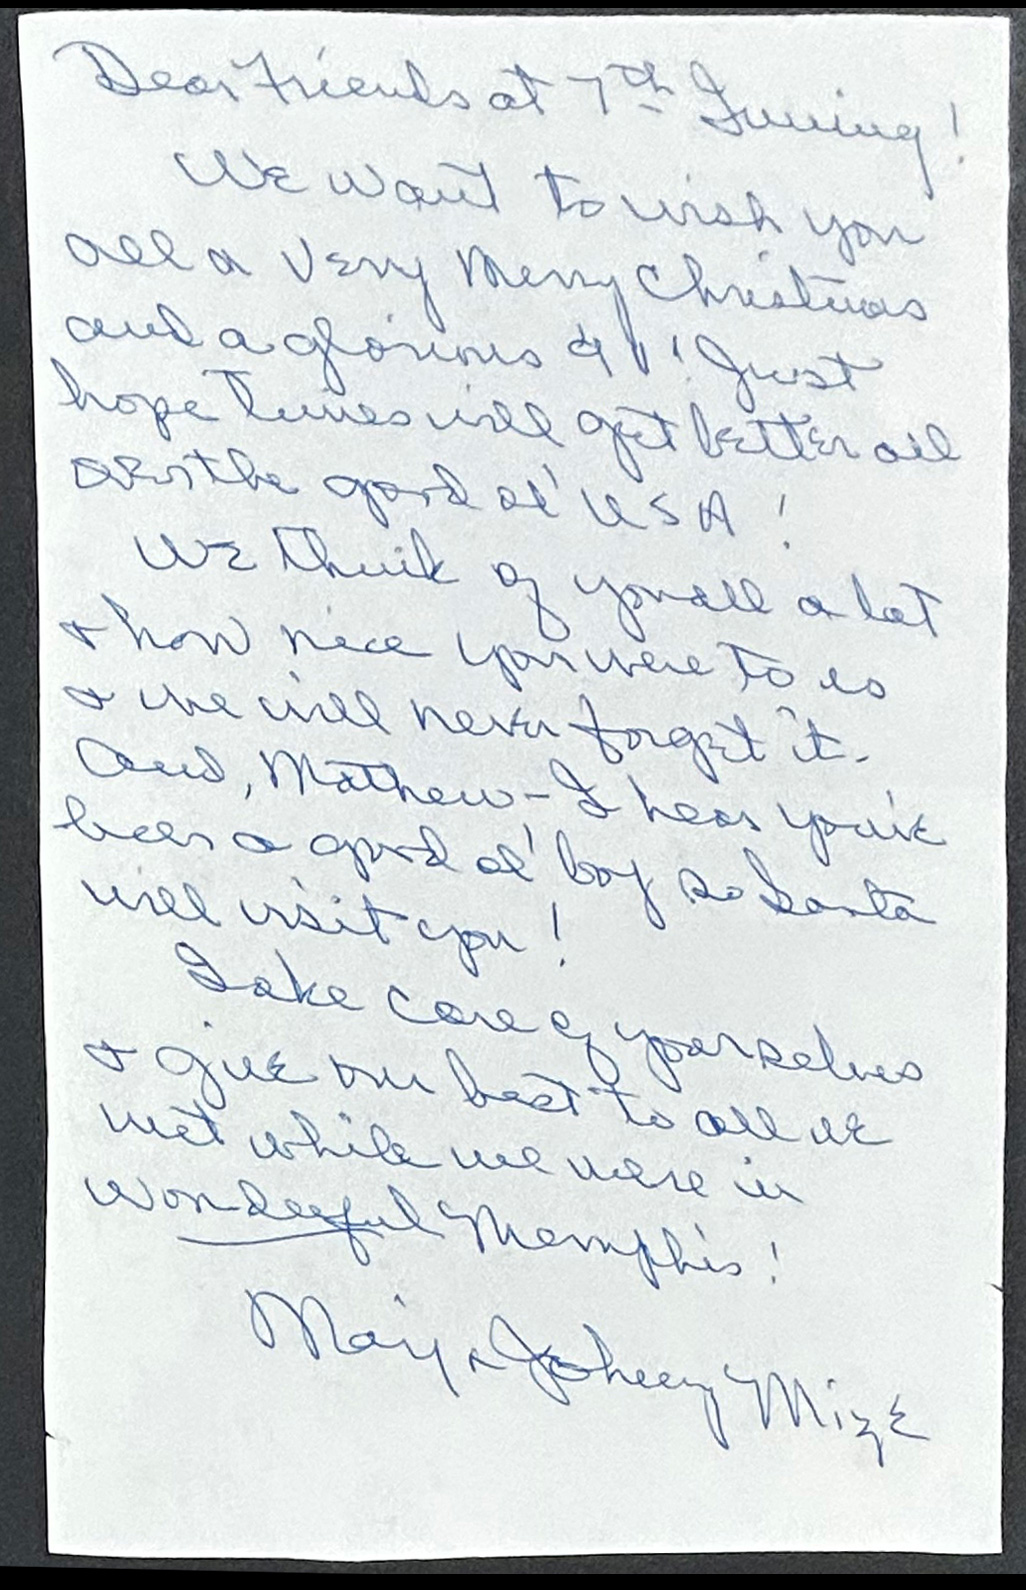 Dear Friends at 7th Inning!
We want to wish you
all a very Merry Christmas
and a glorious 91! Just
hope times will get better all
over the good ol' USA!
We think of you all a lot
& how nice you were to us
& we will never forget it.
And, Mathew - I hear you've
been a good ol' boy so Santa
will visit you!
Take care of yourselves
& give our best to all we
met while we were in
wonderful Memphis!
Marj & Johnny Mize